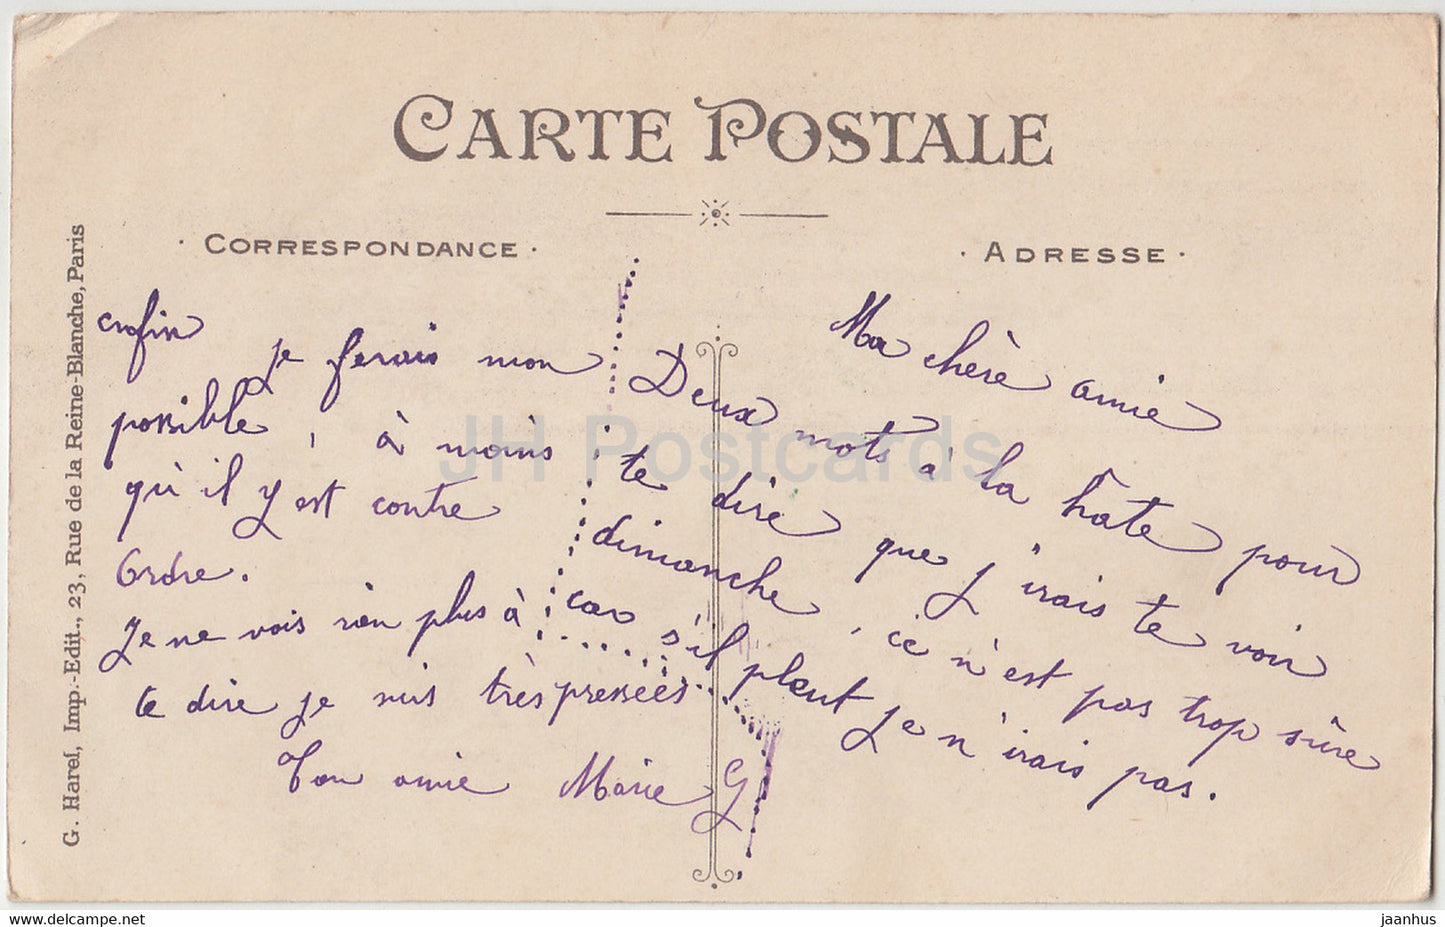 CARTE POSTALE
· CORRESPONDANCE ·
· ADRESSE ·
G. Harel, Imp.-Edit., 23, Rue de la Reine-Blanche, Paris
Ma chère amie
Deux mots à la hâte pour
te dire que j'irais te voir
dimanche, ce n'est pas trop sûre
car s'il pleut je n'irais pas.
enfin
je ferais mon
possible, à moins
qu'il y est contre
Ordre.
Je ne vois rien plus à
te dire je suis très pressées
Ton amie Marie G
JH Postcards
delcampe.net
jaanhus